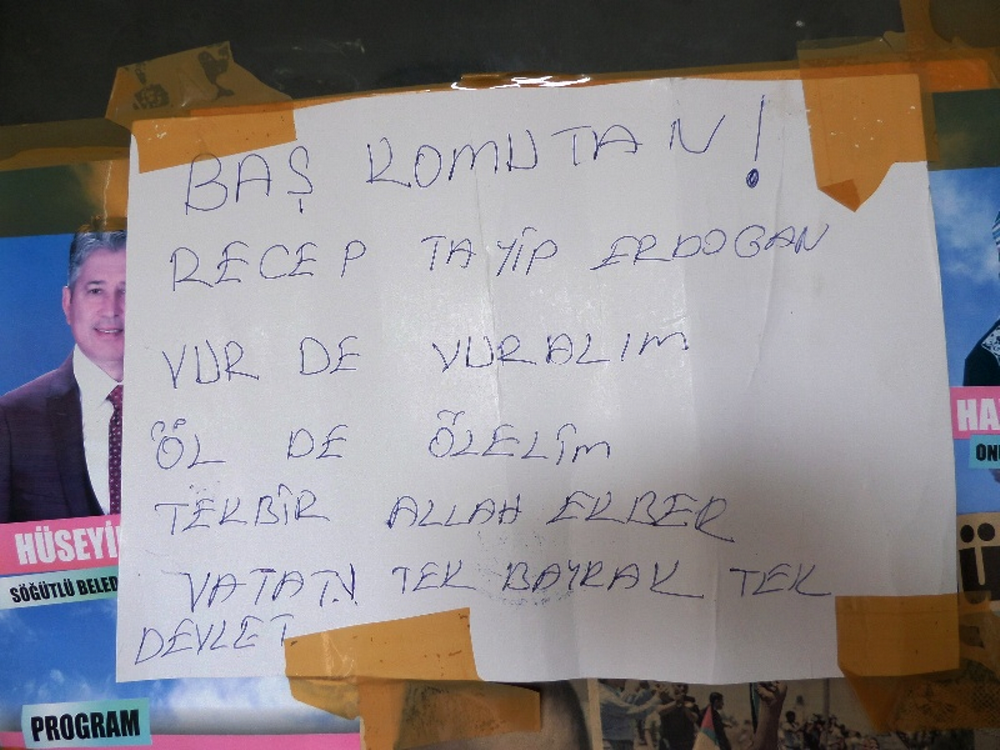 BAŞ KOMUTAN!
RECEP TAYİP ERDOGAN
VUR DE VURALIM
ÖL DE ÖLELİM
TEKBİR ALLAH EKBER
VATAN TEK BAYRAK TEK
DEVLET
HÜSEYİ
SÖĞÜTLÜ BELED
PROGRAM
HA
ON
Ü